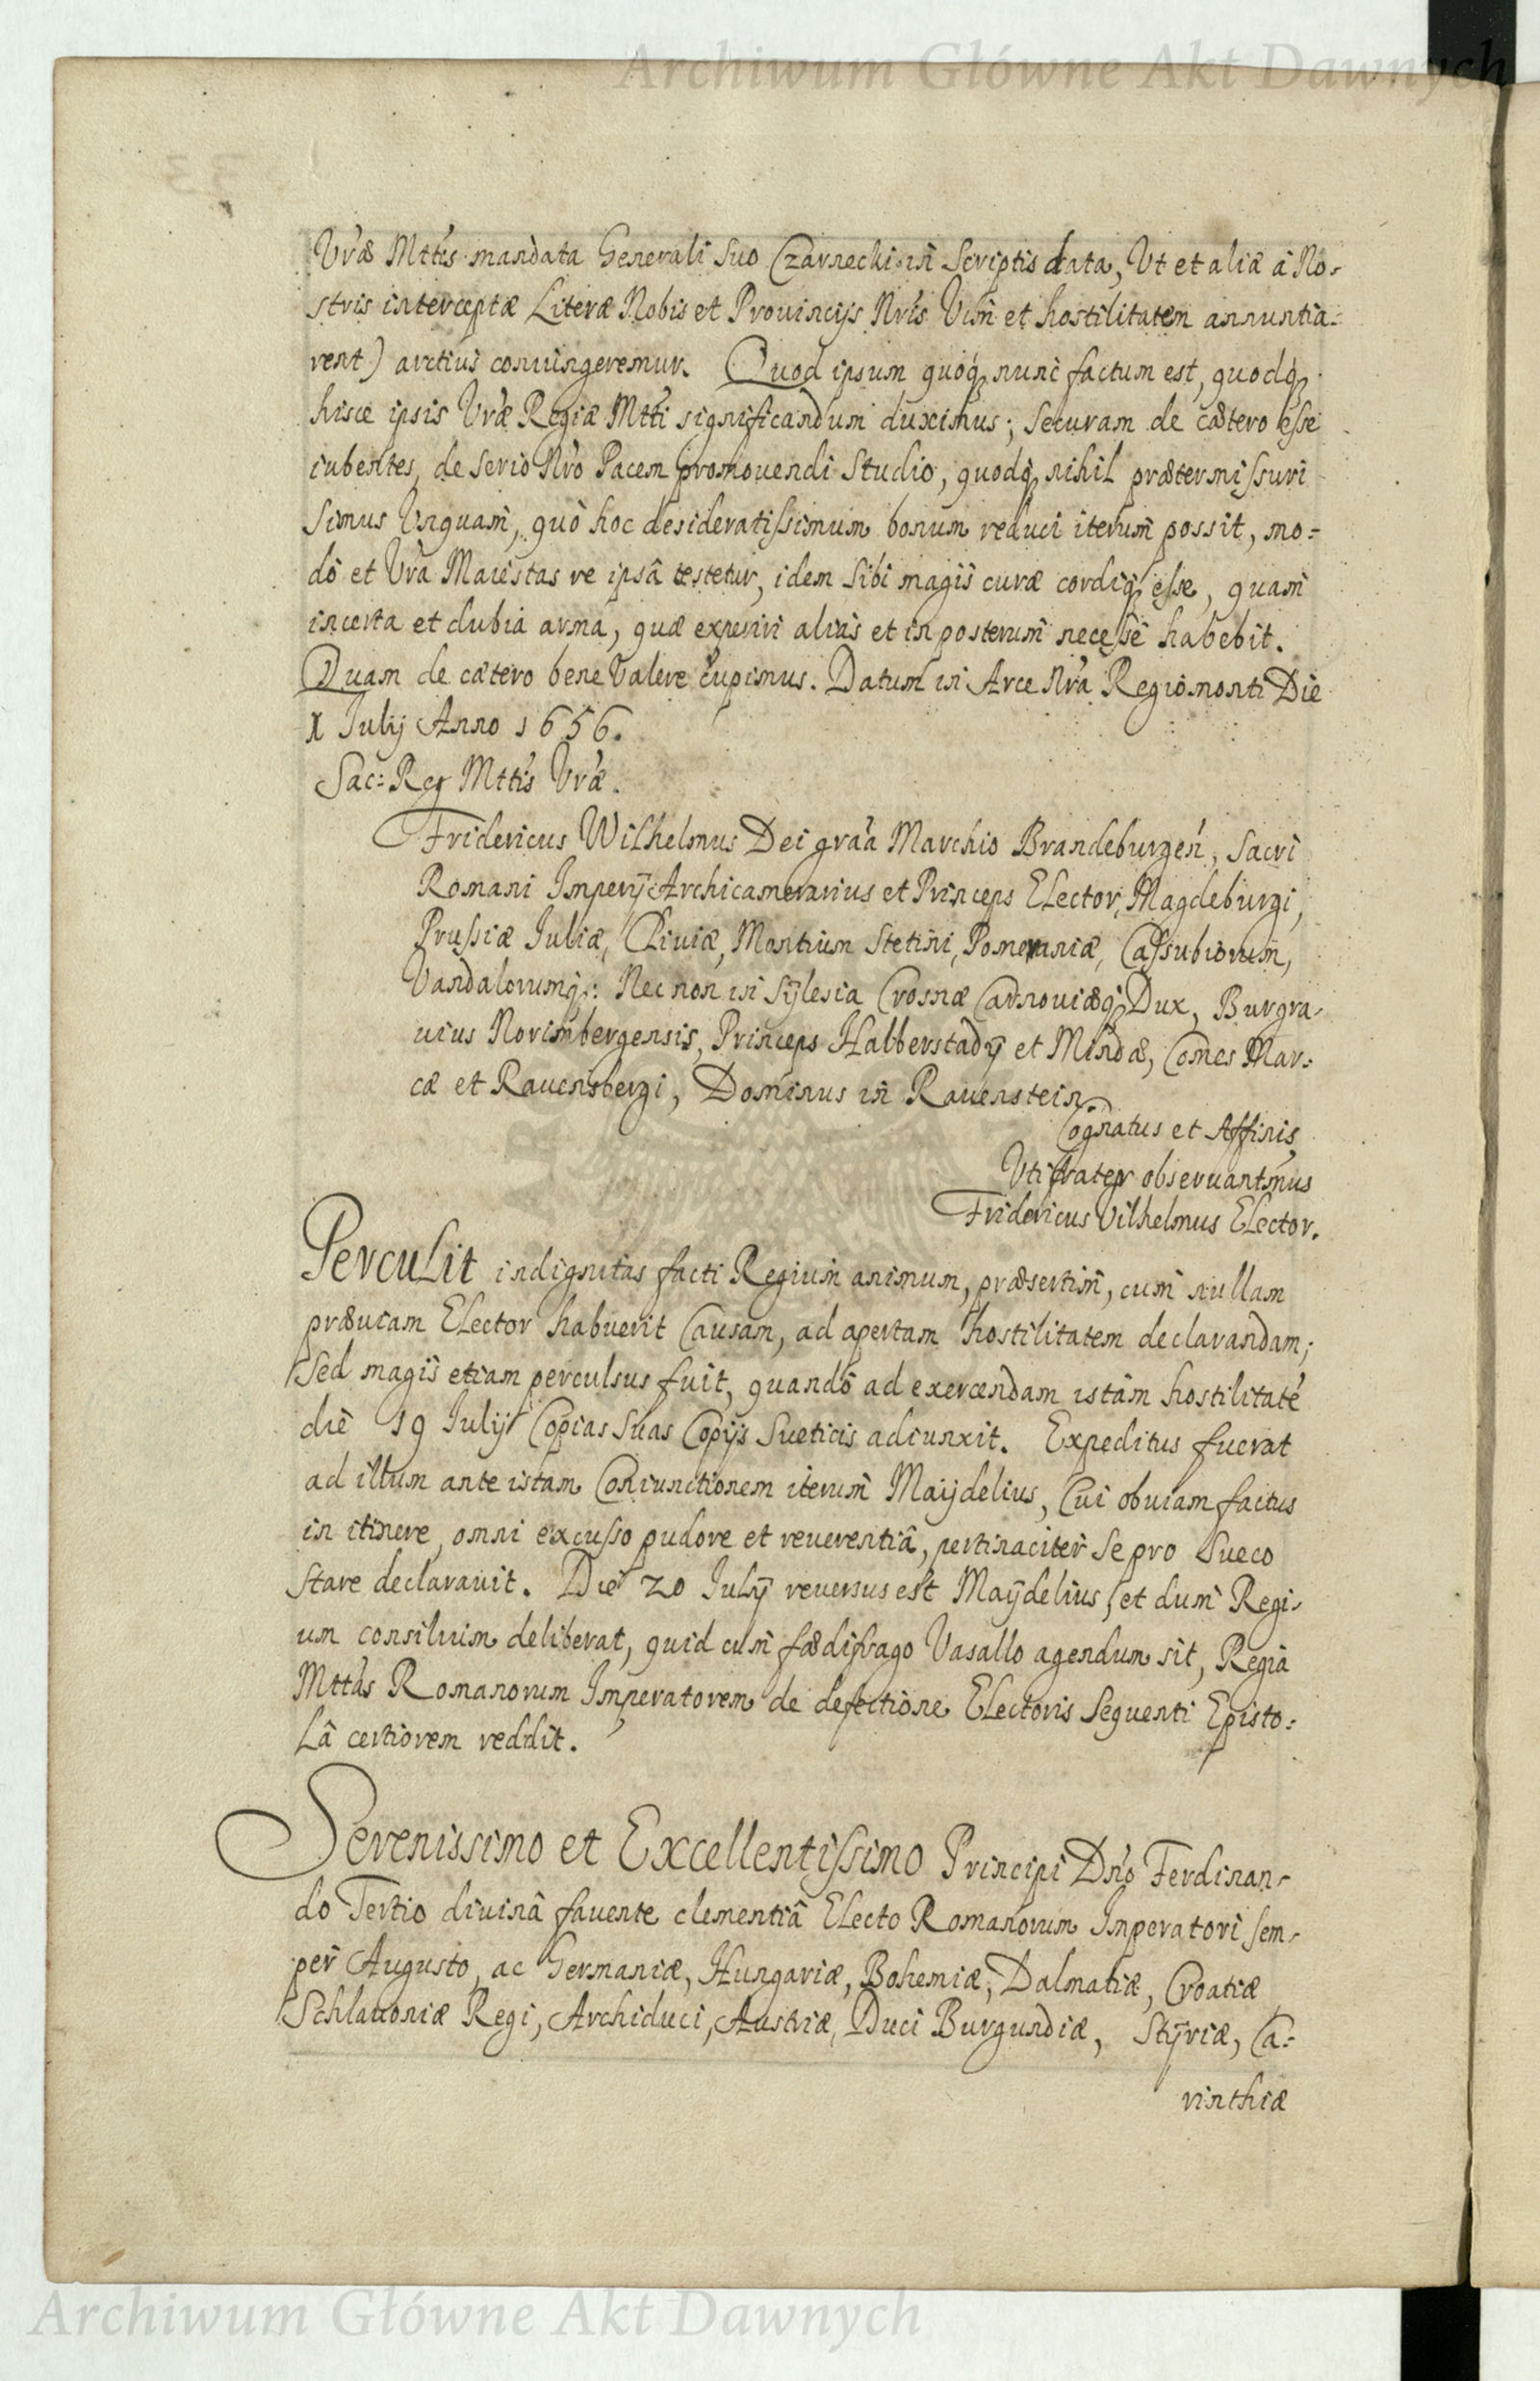 Archiwum Główne Akt Dawnych
Vrae Mttis mandata Generali suo Czarnecki in Scriptis data, Vt et aliae à No-
stris interceptae Literae Nobis et Provincijs Nris Vim et hostilitatem annuntia-
rent) arctius conuingeremur. Quod ipsum quoq; nunc factum est, quodq;
hisce ipsis Vrae Regiae Mtti significandum duximus; Securam de caetero esse
iubentes, de serio Nro Pacem promouendi Studio, quodq; nihil praetermissuri
Simus Vnquam, quò hoc desideratissimum bonum reduci iterum possit, mo-
dò et Vra Maiestas re ipsâ testetur, idem Sibi magis curae cordiq; esse, quam
incerta et dubia arma, quae experiri aliàs et in posterum necesse habebit.
Quam de caetero bene Valere cupimus. Datum in Arce Nra Regiomonti Die
X Iulij Anno 1656.
Sac: Reg Mttis Vrae.
Fridericus Wilhelmus Dei gra͠a Marchio Brandeburgen, Sacri
Romani Imperij Archicamerarius et Princeps Elector, Magdeburgi,
Prussiae Iuliae, Cliuiae, Montium Stetini, Pomeraniae, Cassubiorum,
Vandalorumq;: Nec non in Sÿlesia Crosnae Carnouiaeq; Dux, Burgra-
uius Norimbergensis, Princeps Halberstadij et Mindae, Comes Mar-
cae et Rauensbergi, Dominus in Rauenstein.
Cognatus et Affinis
Vti frater obseruantmus
Fridericus Vilhelmus Elector.
Perculit indignitas facti Regium animum, praesertim, cum nullam
praeuiam Elector habuerit Causam, ad apertam hostilitatem declarandam;
Sed magis etiam perculsus fuit, quando ad exercendam istam hostilitate͂
die 19 Iulij Copias Suas Copijs Sueticis adiunxit. Expeditus fuerat
ad illum ante istam Coniunctionem iterum Maijdelius, Cui obuiam factus
in itinere, omni excusso pudore et reuerentiâ, pertinaciter Se pro Sueco
Stare declarauit. Die 20 Iulij reuersus est Maÿdelius, et dum Regi-
um consilium deliberat, quid cum faedifrago Vasallo agendum sit, Regia
Mttas Romanorum Imperatorem de defectione Electoris Sequenti Episto-
lâ certiorem reddit.
Serenissimo et Excellentissimo Principi Dno Ferdinan-
do Tertio diuinâ fauente clementiâ Electo Romanorum Imperatori sem-
per Augusto, ac Germaniae, Hungariae, Bohemiae, Dalmatiae, Croatiae
Schlauoniae Regi, Archiduci, Austriae, Duci Burgundiae, Stÿriae, Ca-
rinthiae
Archiwum Główne Akt Dawnych